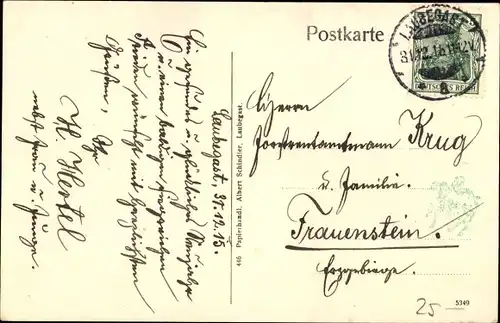 Postkarte
LAUBEGAST
31.12.15
DEUTSCHES REICH
Laubegast, 31.12.15.
Ein gesundes u. glückliches Neujahr
u. einen baldigen siegreichen
Frieden wünscht mit herzlichsten
Grüßen,
Ihr
H. Hertel
nebst Frau u. Junge.
446 Papierhandl. Albert Schindler, Laubegast.
Herrn
Forstrentamtmann Krug
u. Familie.
Frauenstein.
Erzgebirge.
25
5349